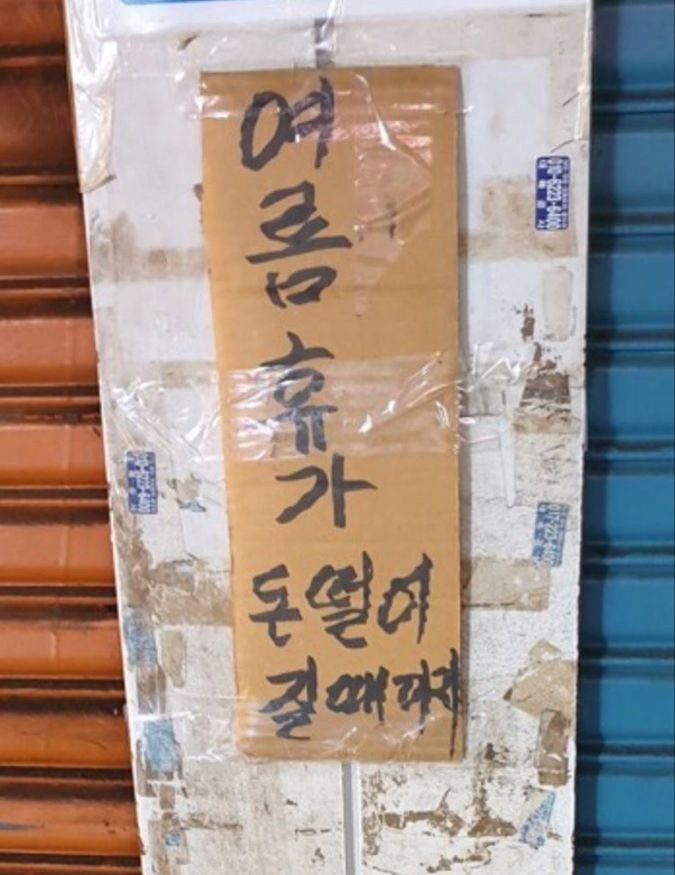 여
름
휴
가
돈떨어
질때까지